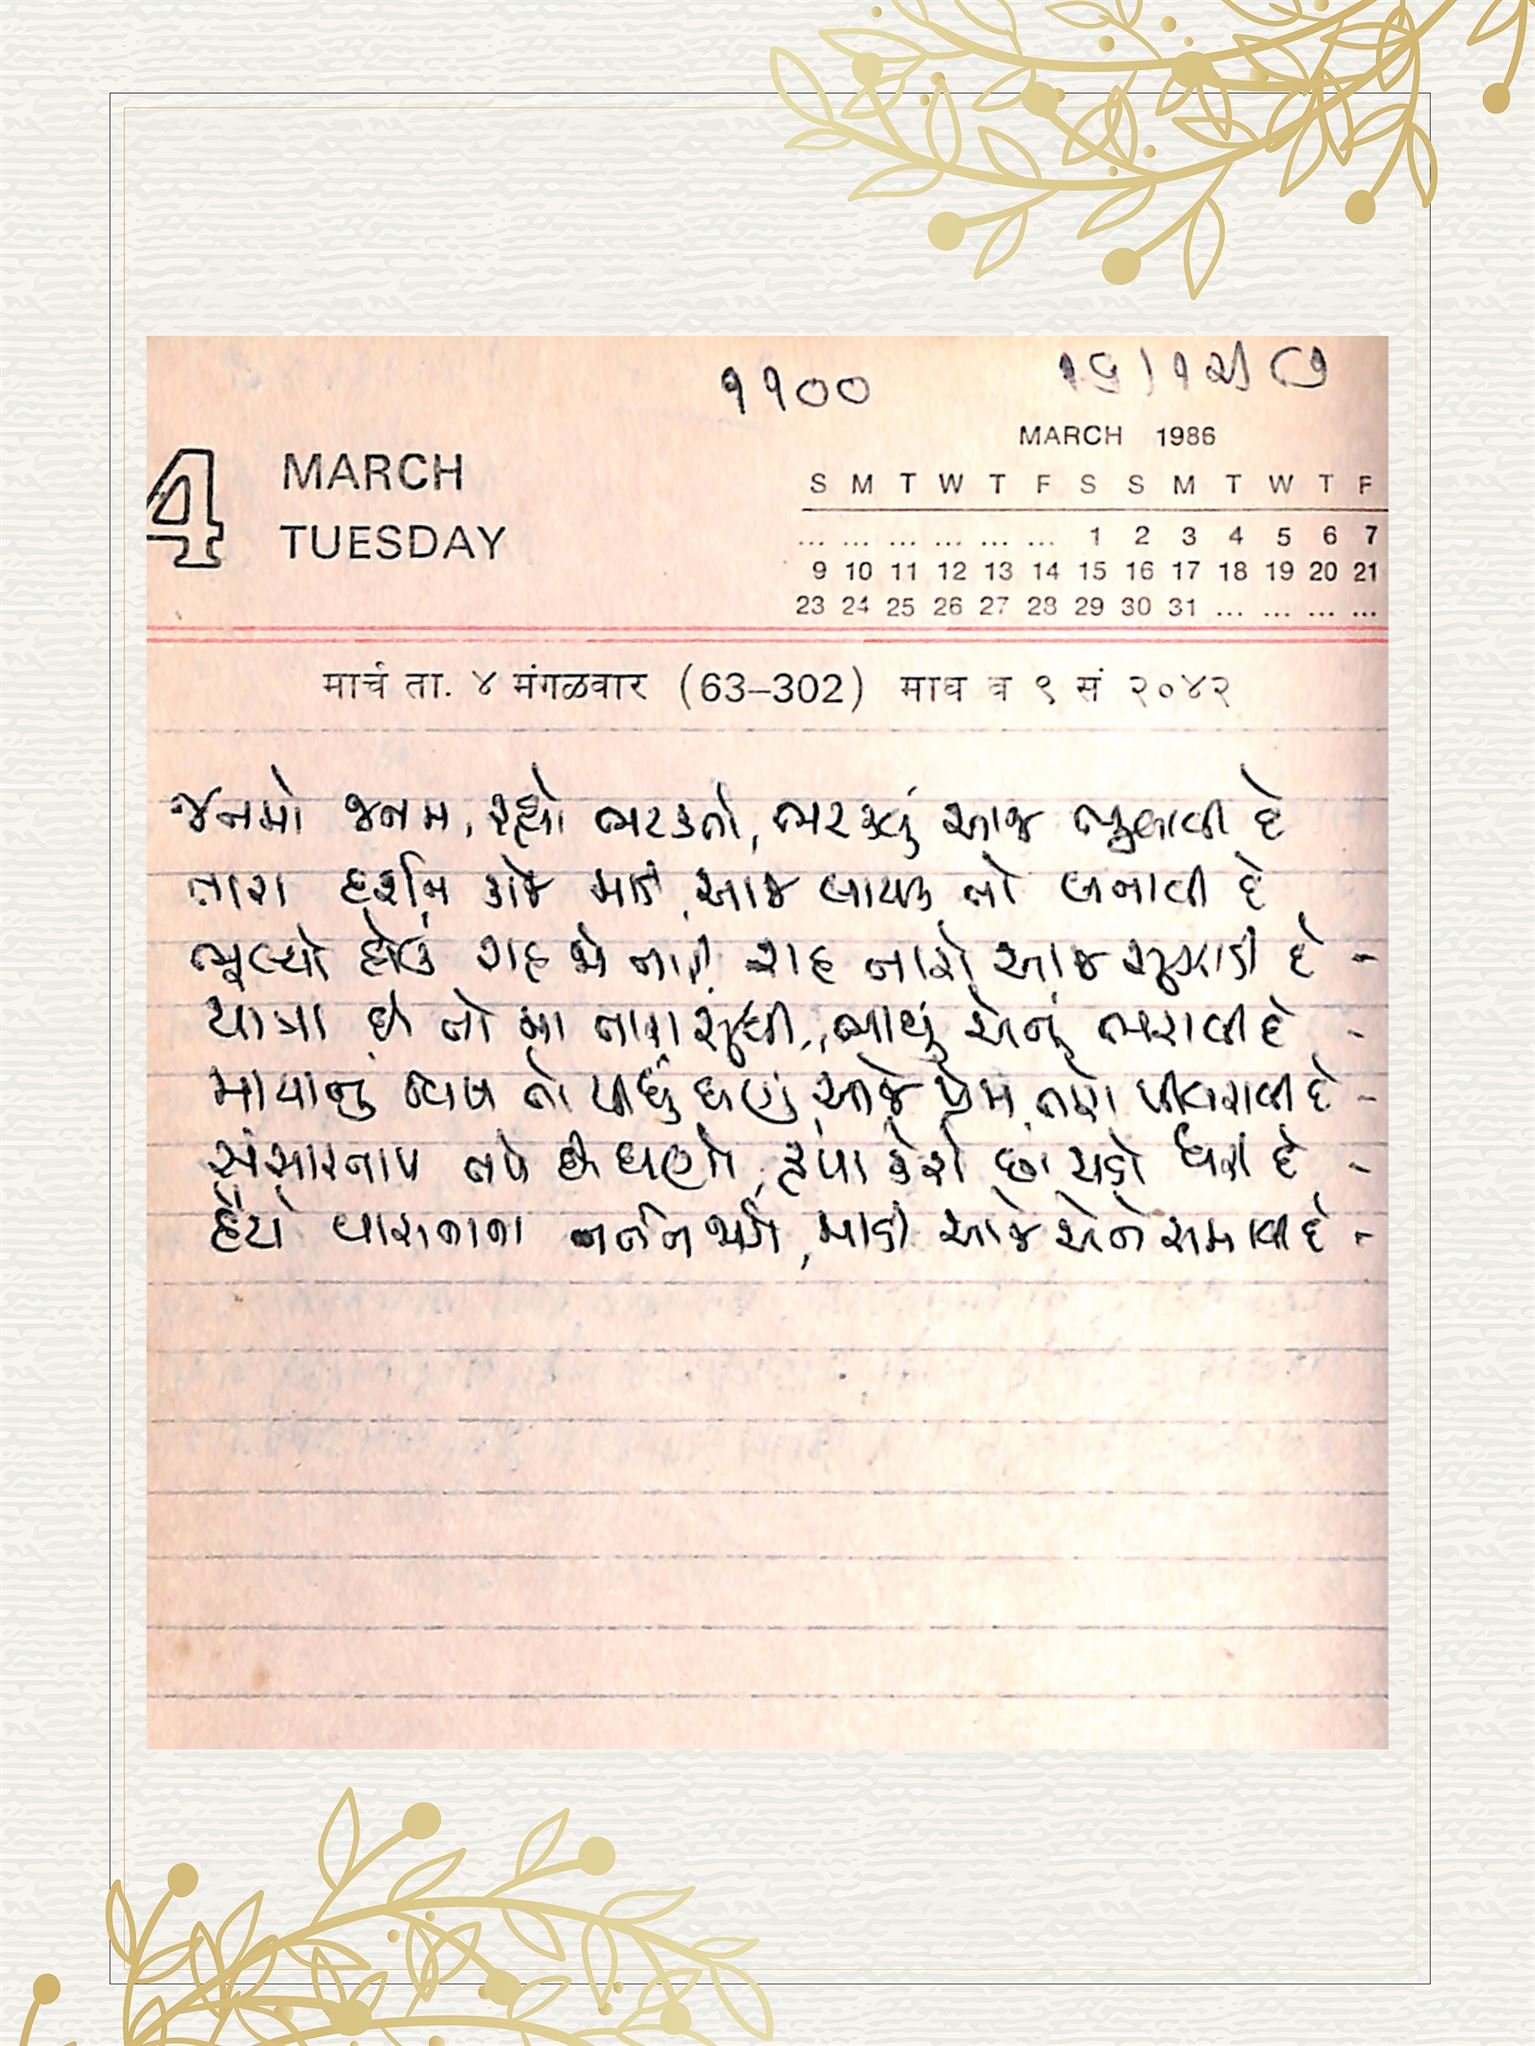 ૧૧૦૦
MARCH 1986
4 MARCH
TUESDAY
S M T W T F S S M T W T F
... ... ... ... ... ... 1 2 3 4 5 6 7
9 10 11 12 13 14 15 16 17 18 19 20 21
23 24 25 26 27 28 29 30 31 ... ... ... ...
मार्च ता. ४ मंगळवार (63–302) माघ व ९ सं २०४२
જનમો જનમ, રહ્યો ભટકતો, ભટકવું આજ ભુલાવી દે
તારા દર્શન કાજે માડી, આજ લાયક તો બનાવી દે
ભૂલ્યો હોઉં રાહ જો તારી, રાહ તારો આજ સુઝાડી દે -
યાત્રા છે તો મા તારા સુધી, ભાથું એનું ભરાવી દે -
માયાનું વિષ તો પીધું ઘણું, આજે પ્રેમ તારો પીવરાવી દે -
સંસારતાપ તપે છે ઘણો, કૃપા કેરી છાંયડી ધરી દે -
હૈયે વાસનાના નર્તન જાગે, માડી આજે એને સમાવી દે -